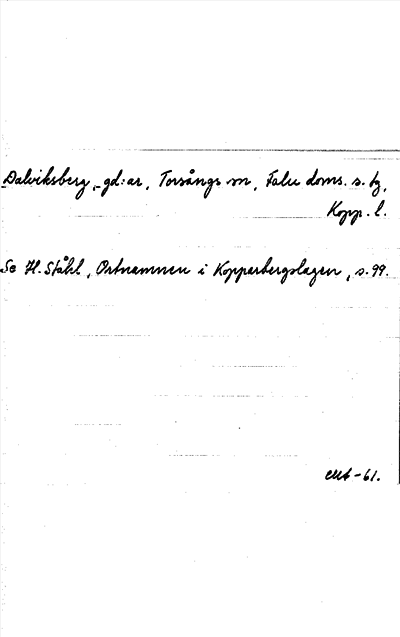 Dalviksberg, gd:ar, Torsångs sn, Falu doms. s. tg,
Kopp. l.
Se H. Ståhl, Ortnamnen i Kopparbergslagen, s. 99.
-61.